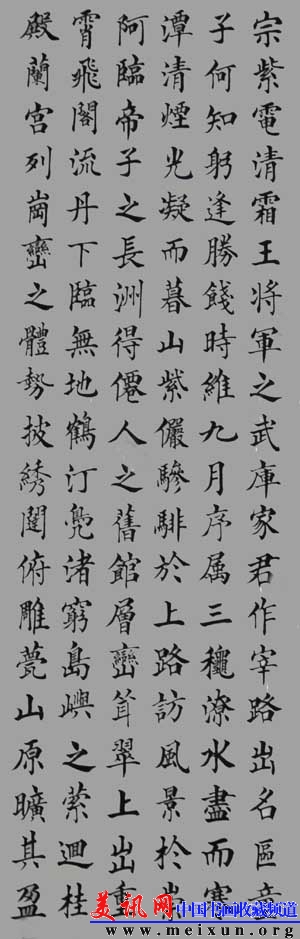 宗紫電清霜王将軍之武庫家君作宰路出名區童
子何知躬逢勝餞時維九月序属三穐潦水盡而寒
潭清煙光凝而暮山紫儼驂騑於上路訪風景於崇
阿臨帝子之長洲得僊人之舊館層巒茸翠上出重
霄飛閣流丹下臨無地鶴汀鳧渚窮島嶼之萦迴桂
殿蘭宮列崗巒之體勢披綉闥俯雕甍山原曠其盈
美讯网 中国书画收藏频道
www.meixun.org